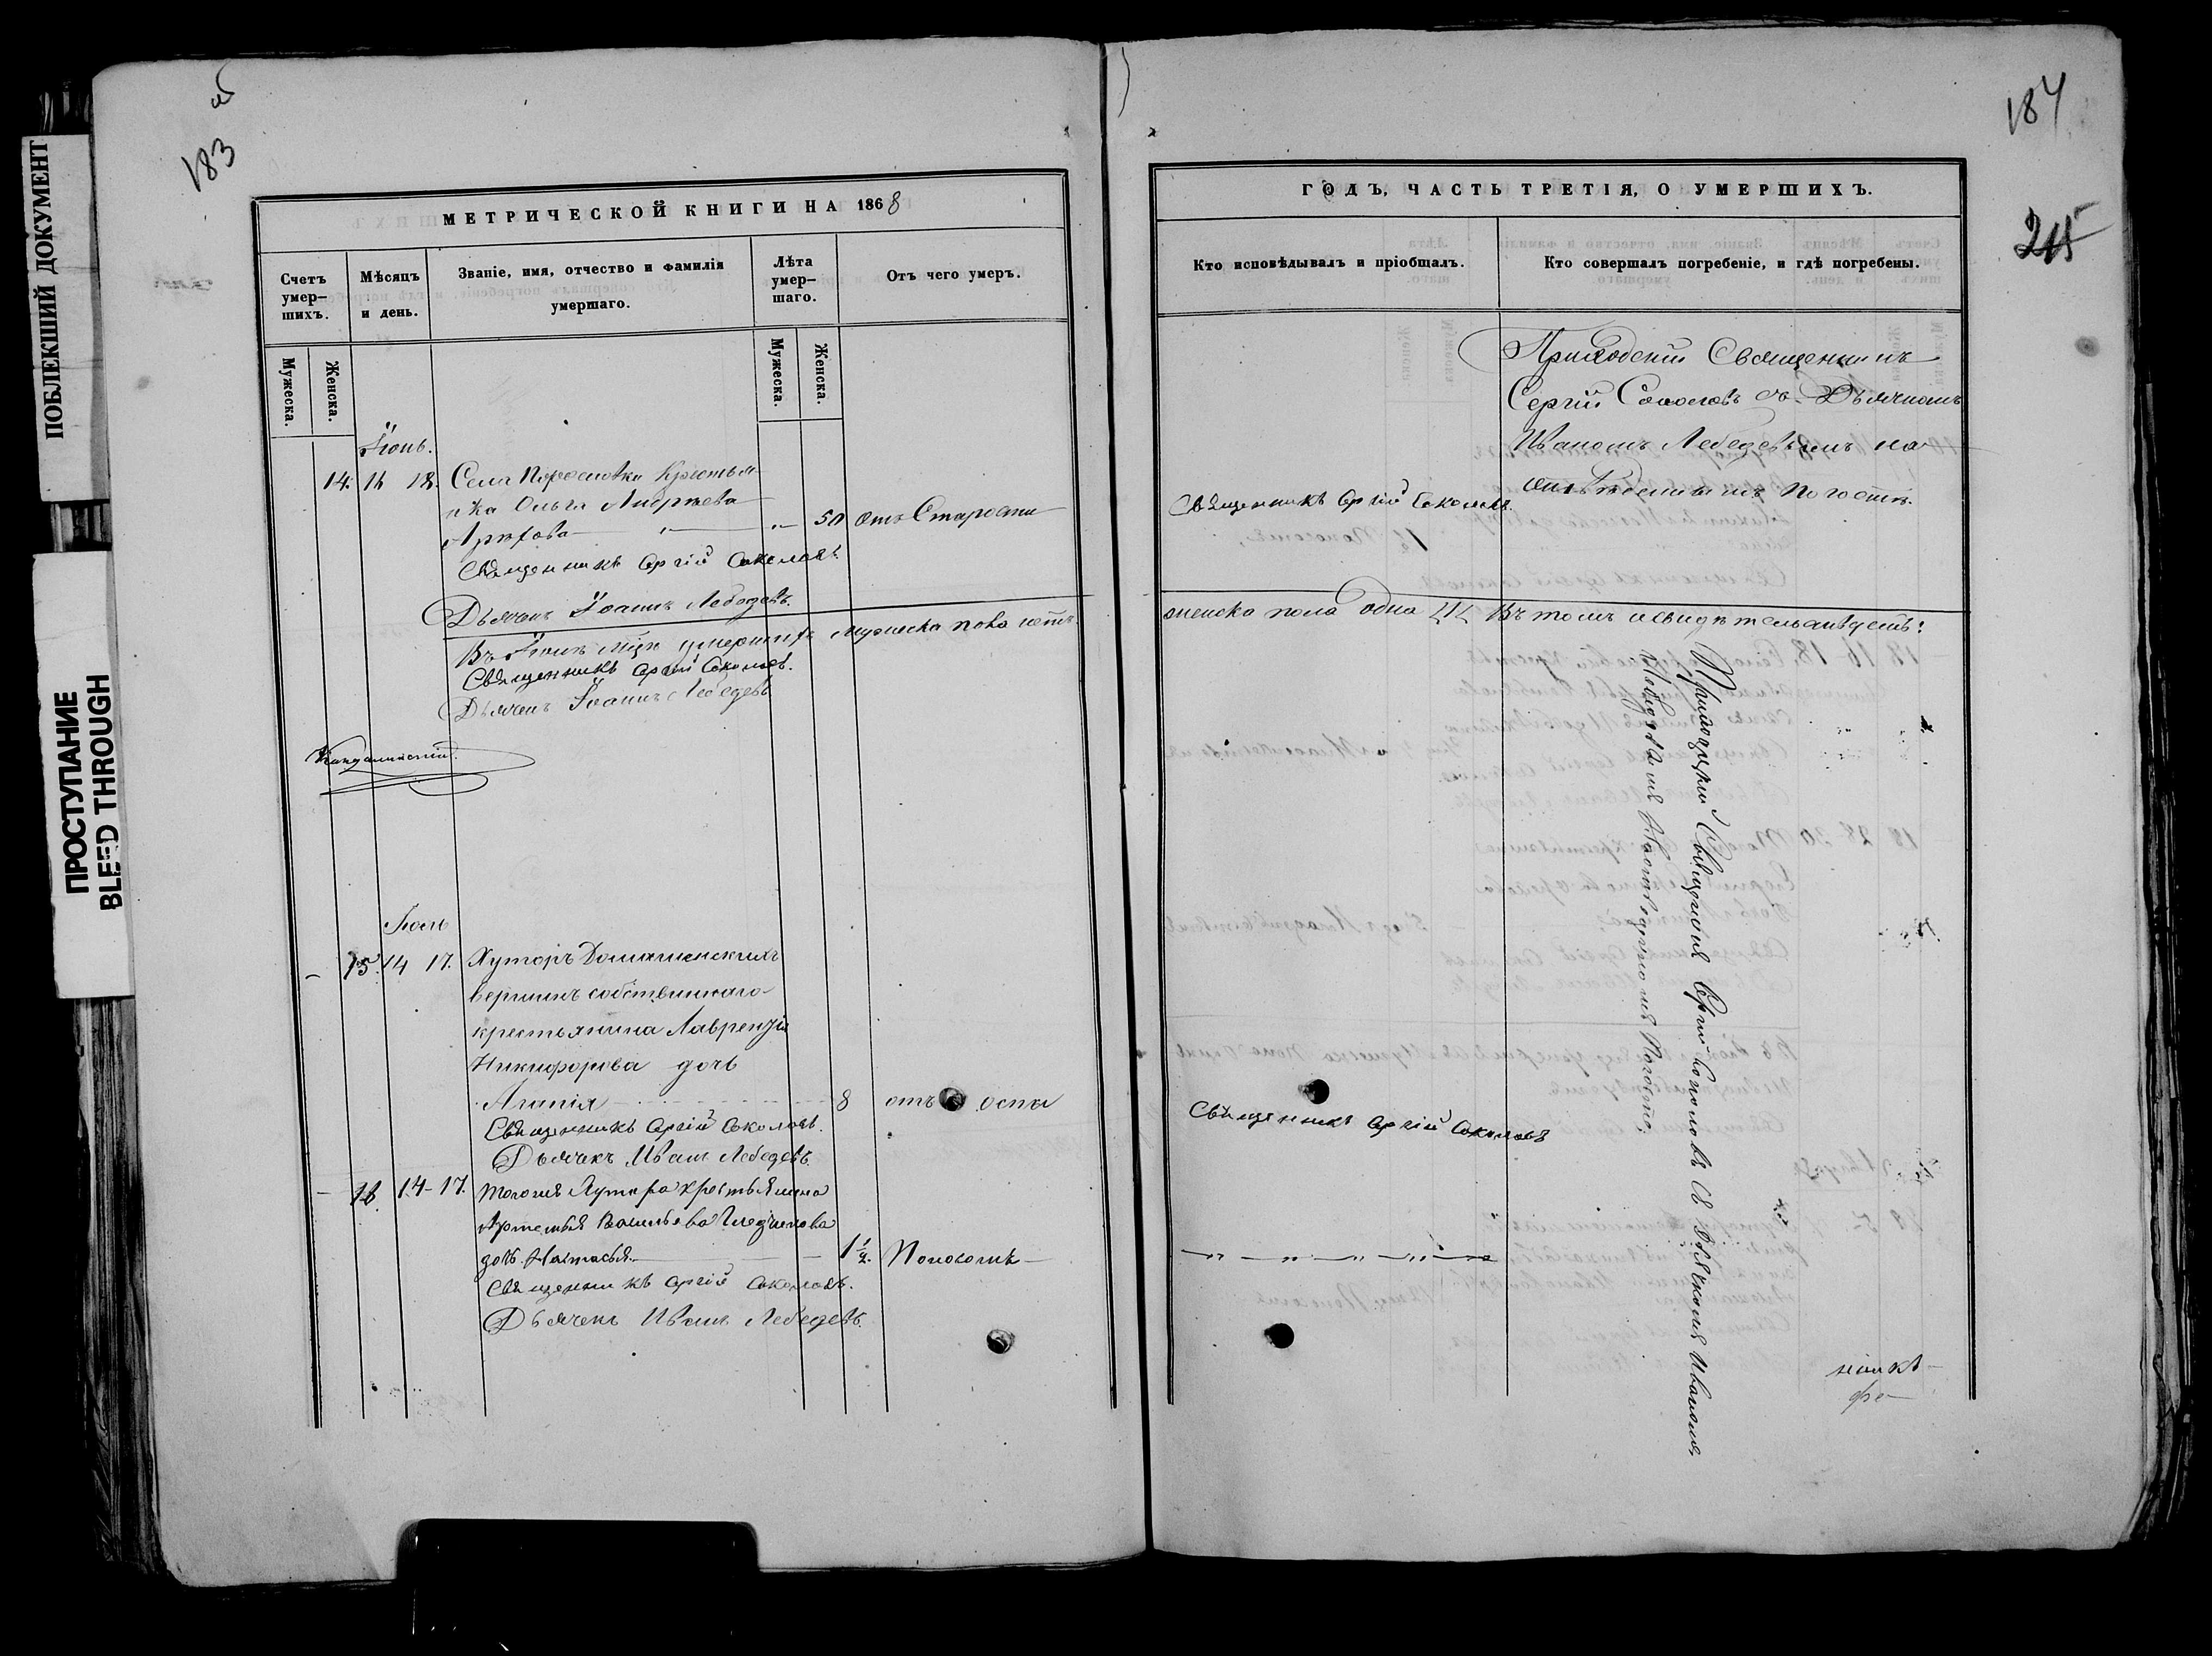 183
об
184
215
ПОБЛЕКШИЙ ДОКУМЕНТ
ПРОСТУПАНИЕ
BLEED THROUGH
МЕТРИЧЕСКОЙ КНИГИ НА 1868
Счетъ умер-шихъ.
Мѣсяцъ и день.
Званіе, имя, отчество и фамилія умершаго.
Лѣта умер-шаго.
Отъ чего умеръ.
Мужеска.
Женска.
Мужеска.
Женска.
Іюнь.
14. 16 18. Села Крестьян-
нка Ольга Андреева
50 отъ Старости
Священникъ Сергій Соколовъ.
Дьячекъ Іоаннъ Лебедевъ.
Въ Іюнѣ умершихъ мужеска пола нѣтъ
Священникъ Сергій Соколовъ.
Дьячекъ Іоаннъ Лебедевъ
Іюль
15. 14 17. Хуторъ
вершинъ собственнаго
крестьянина Лаврентія
Никифорова дочь
Агапія 8 отъ оспы
Священникъ Сергій Соколовъ.
Дьячекъ Иванъ Лебедевъ.
16 14-17. тогоже Хутора крестьянина
Артемья Васильева
дочь Настасья 1 1/2. Поносомъ
Священникъ Сергій Соколовъ.
Дьячекъ Иванъ Лебедевъ.
ГОДЪ, ЧАСТЬ ТРЕТІЯ, О УМЕРШИХЪ.
Кто исповѣдывалъ и пріобщалъ.
Кто совершалъ погребеніе, и гдѣ погребены.
Приходскій Священникъ
Сергій Соколовъ съ Дьячкомъ
Иваномъ Лебедевымъ на
погостѣ.
Священникъ Сергій Соколовъ.
женска пола одна Въ томъ и свидѣтельствуемъ:
Приходскій Священникъ Сергій Соколовъ съ Дьячкомъ Иваномъ
Лебедевымъ на погостѣ.
Священникъ Сергій Соколовъ